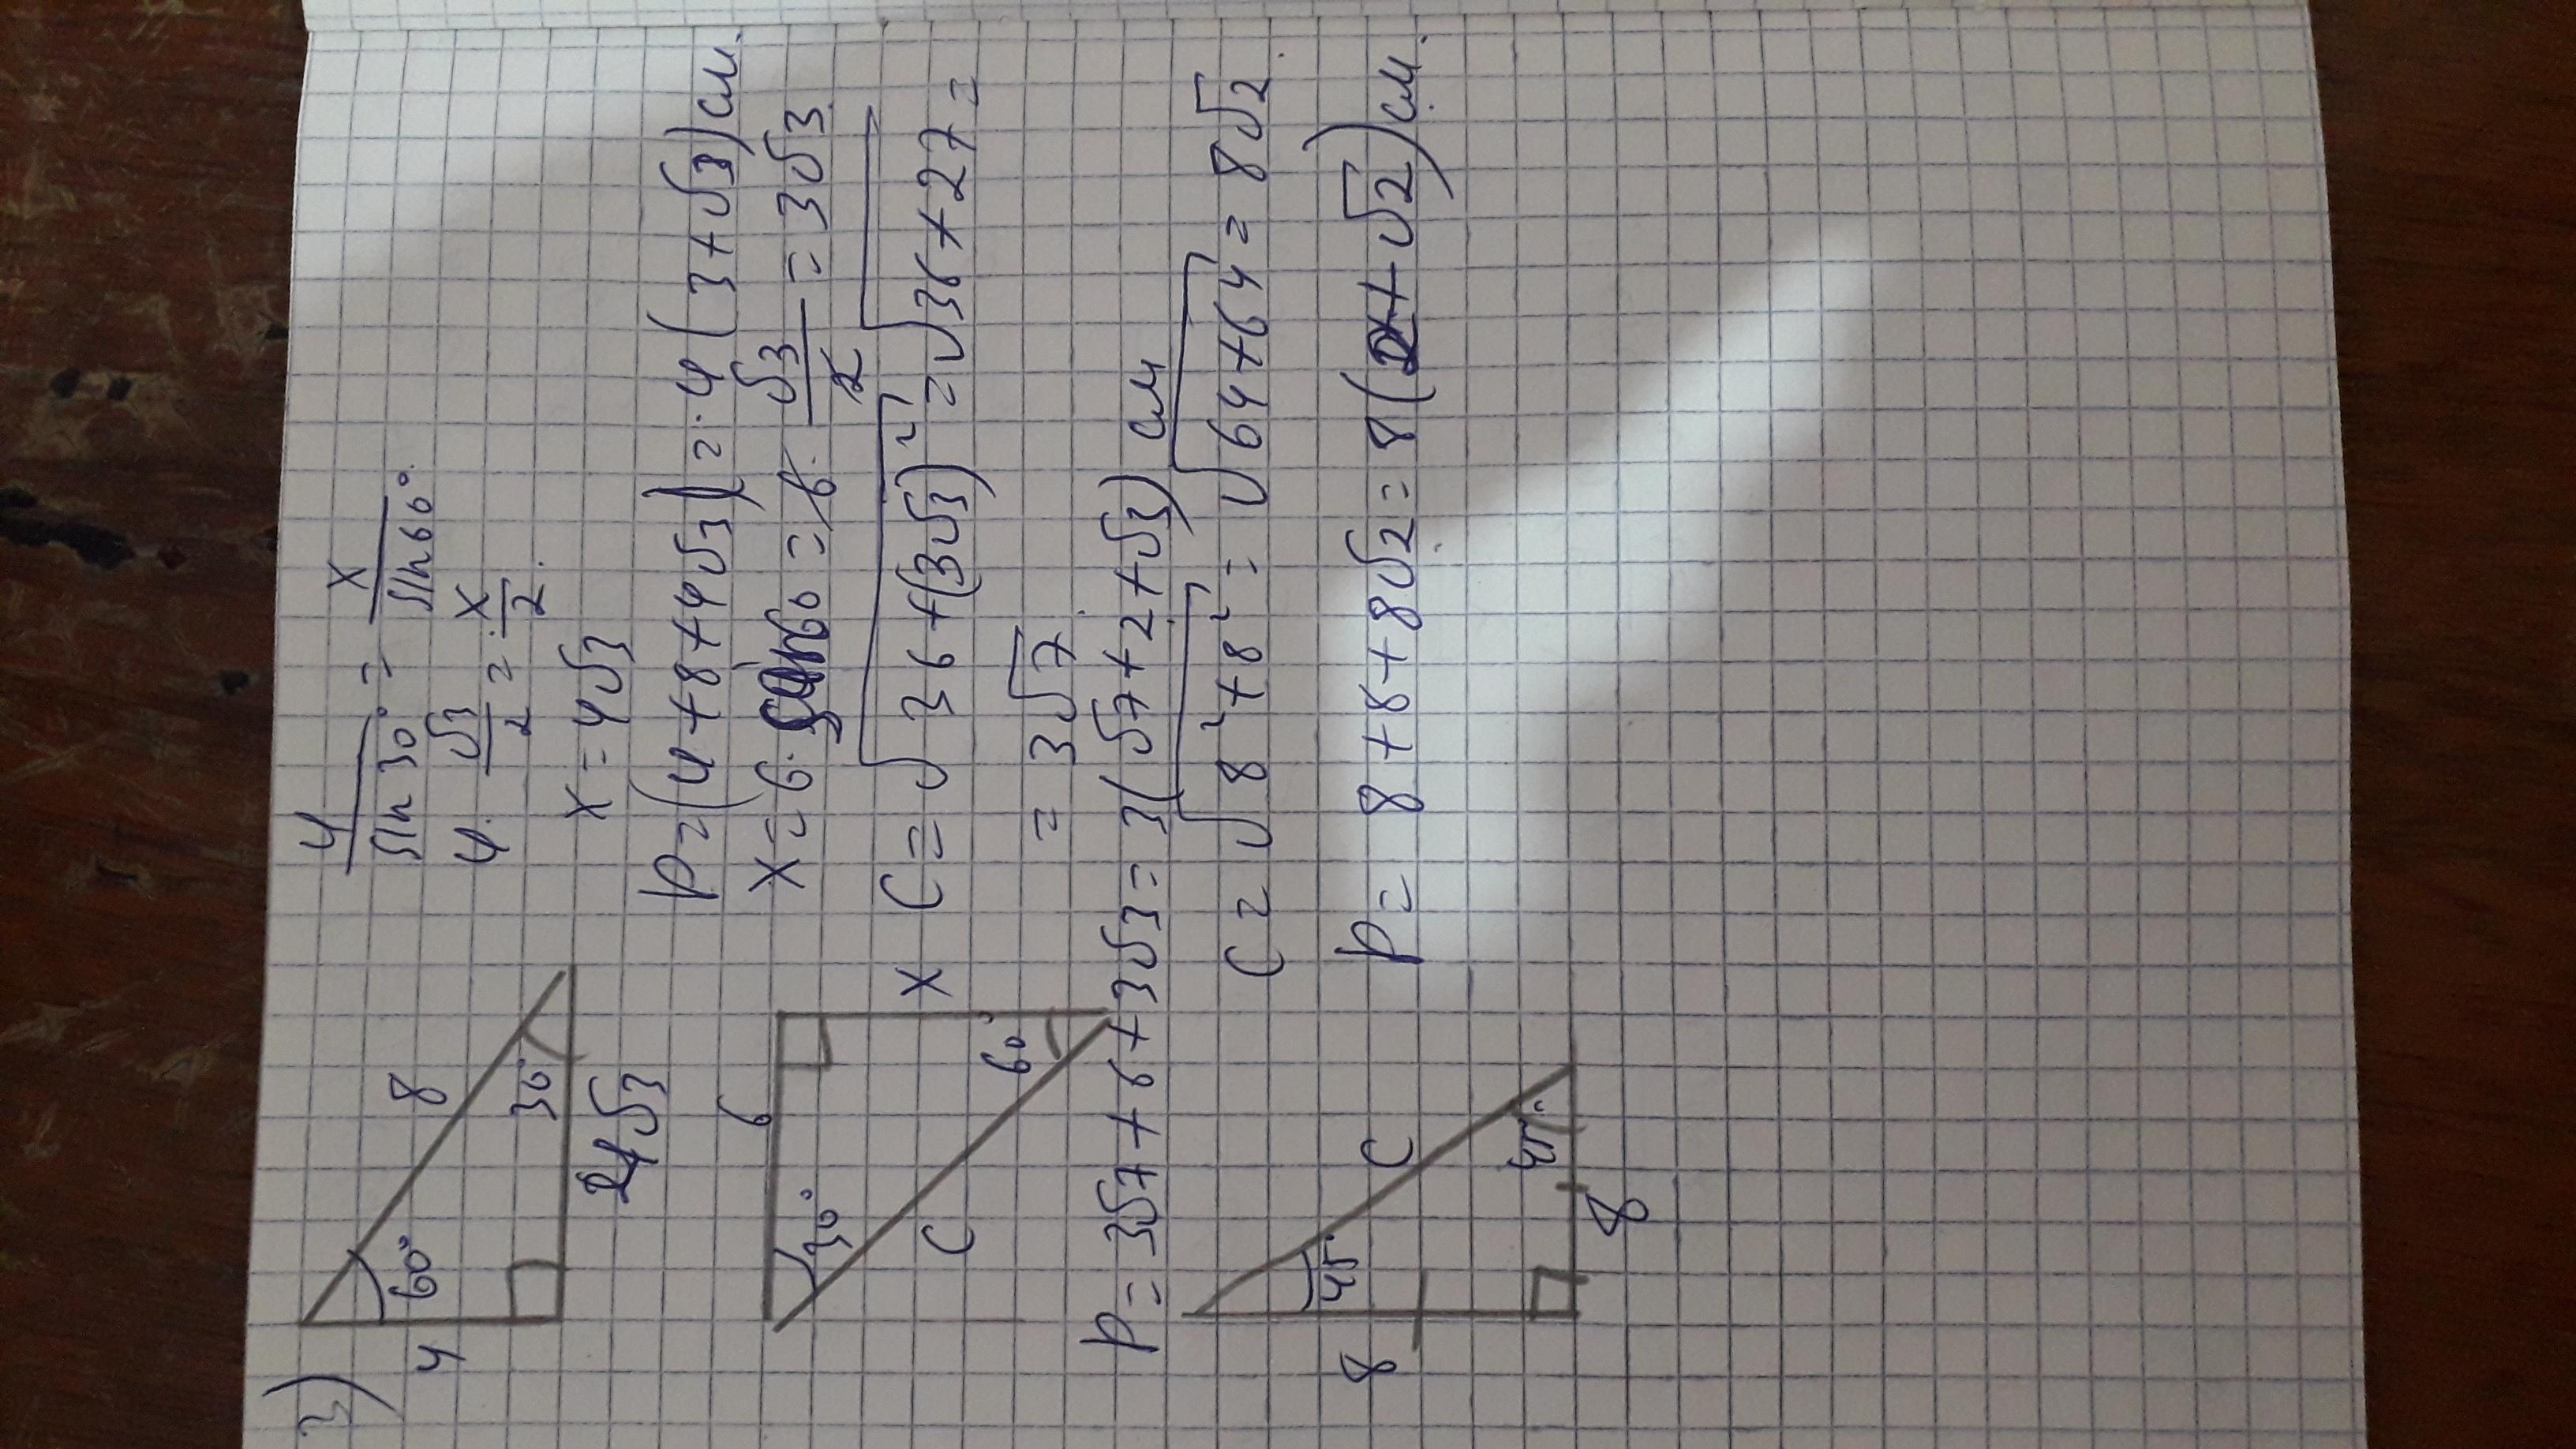 3)
4/sin 30° = x/sin 60°
4 · √3/2 = x/2
x = 4√3
4
60°
8
30°
4√3
P = (4 + 8 + 4√3) = 4(3 + √3) см.
6
30°
60°
x
C
x = 6 · 60 = 6 · √3/2 = 3√3
C = √36 + (3√3)² = √36 + 27 =
= 3√7
P = 3√7 + 6 + 3√3 = 3(√7 + 2 + √3) см
8
45°
C
45°
8
C = √8² + 8² = √64 + 64 = 8√2
P = 8 + 8 + 8√2 = 8(2 + √2) см.